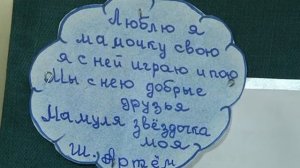 Люблю я
мамочку свою
я с ней играю и пою
Мы с нею добрые
друзья
Мамуля звёздочка
моя
Ш. Артём